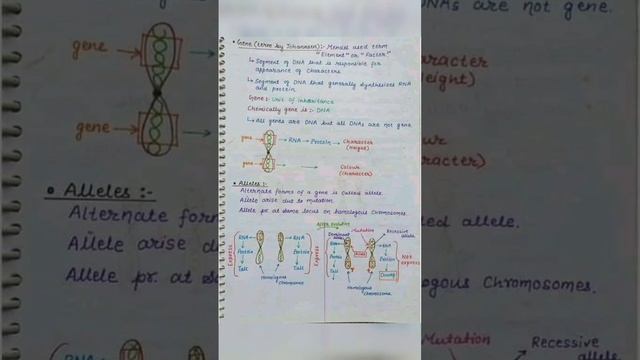 • Gene (term by Johannsen) :- Mendel used term
"Element" or "Factor"
↳ Segment of DNA that is responsible for
appearance of characters
↳ Segment of DNA that generally synthesizes RNA
and protein
Gene :- Unit of inheritance
Chemically gene is :- DNA
↳ All genes are DNA but all DNAs are not gene
gene → RNA → Protein → Character
(Height)
gene → → Colour
(Character)
• Alleles :-
Alternate forms of a gene is called allele.
Allele arise due to mutation.
Allele pr. at same locus on homologous chromosomes.
After mutation
Mutation
Recessive
allele
Dominant
Express
RNA
Protein
Tall
RNA
Protein
Tall
Express
homologous
chromosome
RNA
Protein
Tall
RNA
Protein
Not
express
homologous
chromosome
gene
gene
• Alleles :-
Alternate form
Allele arise d
Allele pr. at s
DNAs are not gene.
aracter
eight)
our
aracter)
ed allele.
ogous Chromosomes.
Mutation
Recessive
allele